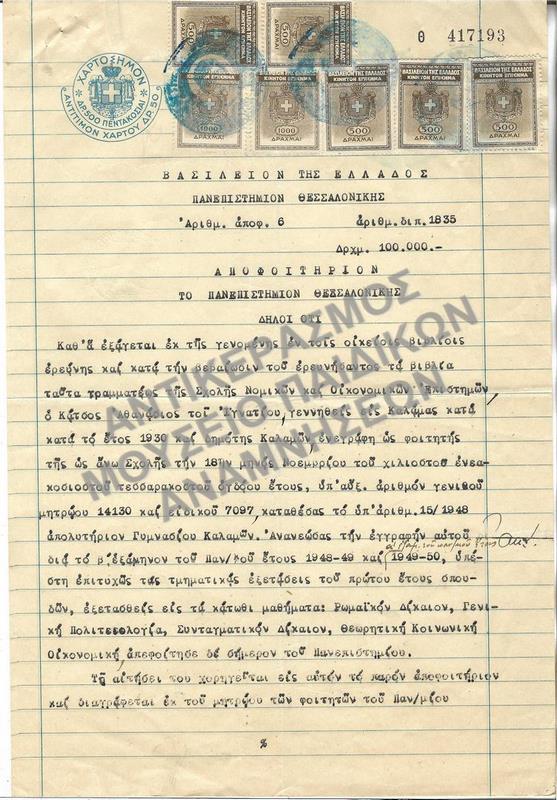 Θ 417193
ΧΑΡΤΟΣΗΜΟΝ
ΔΡ. 500 ΠΕΝΤΑΚΟΣΙΑΙ
ΑΝΤΙΤΙΜΟΝ ΧΑΡΤΟΥ ΔΡ. 50
500 ΔΡΑΧΜΑΙ
500 ΔΡΑΧΜΑΙ
ΒΑΣΙΛΕΙΟΝ ΤΗΣ ΕΛΛΑΔΟΣ
ΚΙΝΗΤΟΝ ΕΠΙΣΗΜΑ
1000 ΔΡΑΧΜΑΙ
1000 ΔΡΑΧΜΑΙ
500 ΔΡΑΧΜΑΙ
500 ΔΡΑΧΜΑΙ
500 ΔΡΑΧΜΑΙ
ΒΑΣΙΛΕΙΟΝ ΤΗΣ ΕΛΛΑΔΟΣ
ΠΑΝΕΠΙΣΤΗΜΙΟΝ ΘΕΣΣΑΛΟΝΙΚΗΣ
Ἀριθμ. ἀποφ. 6 ἀριθμ. διπ. 1835
Δρχμ. 100.000.-
ΑΠΟΦΟΙΤΗΡΙΟΝ
ΤΟ ΠΑΝΕΠΙΣΤΗΜΙΟΝ ΘΕΣΣΑΛΟΝΙΚΗΣ
ΔΗΛΟΙ ΟΤΙ
Καθ'ἅ ἐξάγεται ἐκ τῆς γενομένης ἐν τοῖς οἰκείοις βιβλίοις
ἐρεύνης καί κατά τήν βεβαίωσιν τοῦ ἐρευνήσαντος τά βιβλία
ταῦτα γραμματέως τῆς Σχολῆς Νομικῶν καί Οἰκονομικῶν Ἐπιστημῶν
ὁ Κάτσος Ἀθανάσιος τοῦ Ἰγνατίου, γεννηθείς εἰς Καλάμας κατά
κατά τό ἔτος 1930 καί δημότης Καλαμῶν, ἐνεγράφη ὡς φοιτητής
τῆς ὡς ἄνω Σχολῆς τήν 18ην μηνός Νοεμβρίου τοῦ χιλιοστοῦ ἐνεα-
κοσιοστοῦ τεσσαρακοστοῦ ὀγδόου ἔτους, ὑπ'αὔξ. ἀριθμόν γενικοῦ
μητρῴου 14130 καί εἰδικοῦ 7097, καταθέσας τό ὑπ'ἀριθμ. 15/1948
ἀπολυτήριον Γυμνασίου Καλαμῶν. Ἀνανεώσας τήν ἐγγραφήν αὑτοῦ
διά τό β΄ἑξάμηνον τοῦ Παν/κοῦ ἔτους 1948-49 καί 1949-50, ὑπέ-
στη ἐπιτυχῶς τάς τμηματικάς ἐξετάσεις τοῦ πρώτου ἔτους σπου-
δῶν, ἐξετασθείς εἰς τά κάτωθι μαθήματα: Ρωμαϊκόν Δίκαιον, Γενι-
κή Πολιτειολογία, Συνταγματικόν Δίκαιον, Θεωρητική Κοινωνική
Οἰκονομική, ἀπεφοίτησε δέ σήμερον τοῦ Πανεπιστημίου.
Τῇ αἰτήσει του χορηγεῖται εἰς αὐτόν τό παρόν ἀποφοιτήριον
καί διαγράφεται ἐκ τοῦ μητρῴου τῶν φοιτητῶν τοῦ Παν/μίου
%
ΑΝΤΙΚΕΡΑΣΜΟΣ
ΜΟΥΣΕΙΟ ΠΑΙΔΙΚΩΝ
ΑΝΑΜΝΗΣΕΩΝ